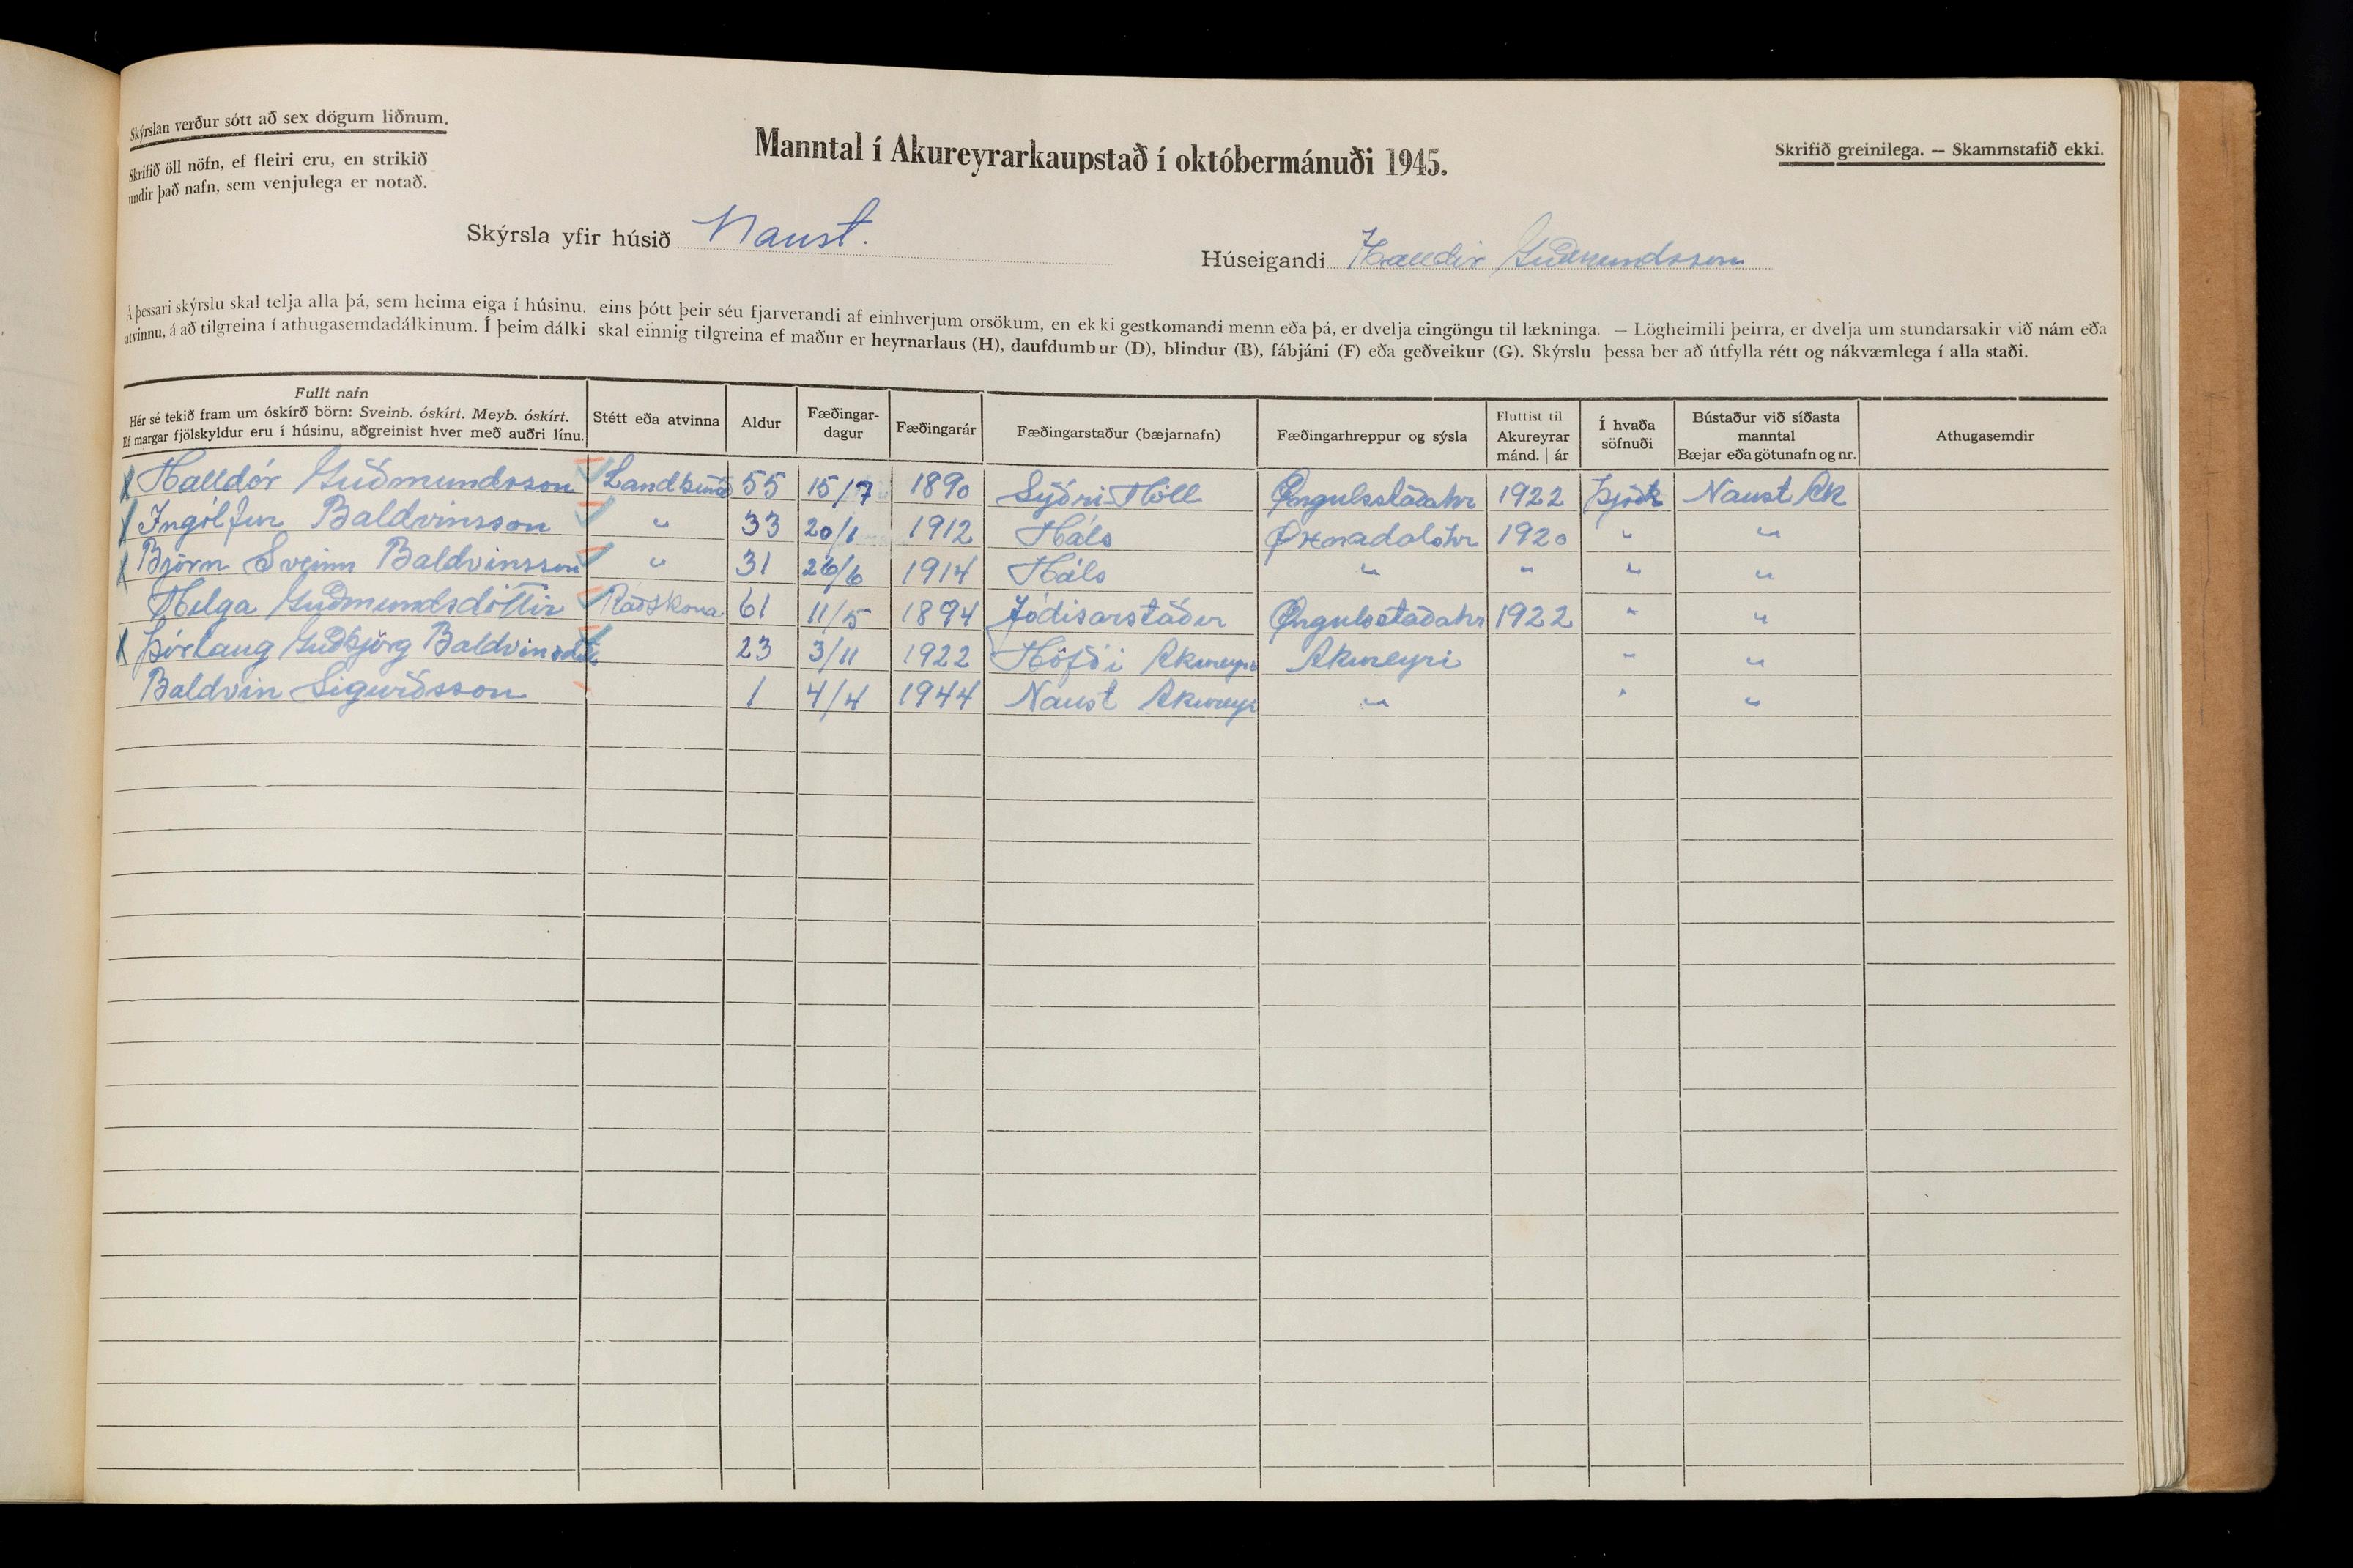 Skýrslan verður sótt að sex dögum liðnum.
Skrifið öll nöfn, ef fleiri eru, en strikið
undir það nafn, sem venjulega er notað.
Manntal í Akureyrarkaupstað í októbermánuði 1945.
Skrifið greinilega. — Skammstafið ekki.
Skýrsla yfir húsið Naust.
Húseigandi Halldór Guðmundsson
Á þessari skýrslu skal telja alla þá, sem heima eiga í húsinu, eins þótt þeir séu fjarverandi af einhverjum orsökum, en ekki gestkomandi menn eða þá, er dvelja eingöngu til lækninga. — Lögheimili þeirra, er dvelja um stundarsakir við nám eða
atvinnu, á að tilgreina í athugasemdadálkinum. Í þeim dálki skal einnig tilgreina ef maður er heyrnarlaus (H), daufdumbur (D), blindur (B), fábjáni (F) eða geðveikur (G). Skýrslu þessa ber að útfylla rétt og nákvæmlega í alla staði.
Fullt nafn
Hér sé tekið fram um óskírð börn: Sveinb. óskírt. Meyb. óskírt.
Ef margar fjölskyldur eru í húsinu, aðgreinist hver með auðri línu.
Stétt eða atvinna
Aldur
Fæðingar-
dagur
Fæðingarár
Fæðingarstaður (bæjarnafn)
Fæðingarhreppur og sýsla
Fluttist til
Akureyrar
mánd. | ár
Í hvaða
söfnuði
Bústaður við síðasta
manntal
Bæjar eða götunafn og nr.
Athugasemdir
x Halldór Guðmundsson Landbúnað 55 15/7 1890 Syðri-Hóll Öngulsstaðahr 1922 Þjóðk Naust Ak
x Ingólfur Baldvinsson " 33 20/1 1912 Háls Öxnadalshr 1920 " "
x Björn Sveinn Baldvinsson " 31 26/6 1914 Háls " " " "
Helga Guðmundsdóttir Ráðskona 61 11/5 1894 Jódisarstaðir Öngulsstaðahr 1922 " "
x Þórlaug Guðbjörg Baldvinsdóttir 23 3/11 1922 Höfði Akureyri Akureyri " "
Baldvin Sigurðsson 1 4/4 1944 Naust Akureyri " " "